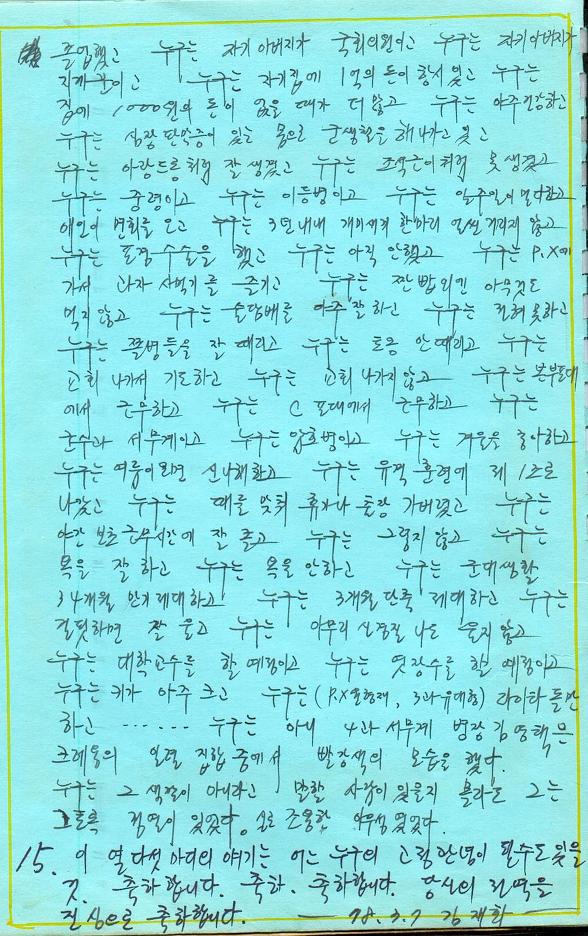 졸업했고 누구는 자기 아버지가 국회의원이고 누구는 자기 아버지가
누구는 자기집에 1억의 돈이 항시 있고 누구는
집에 1,000원의 돈이 없을 때가 더 많고 누구는 아주 건강하고
누구는 심장 판막증이 있는 몸으로 군생활을 해나가고 있고
누구는 아랑드롱처럼 잘 생겼고 누구는 조석근이처럼 못 생겼고
누구는 중령이고 누구는 이등병이고 누구는 일주일이 멀다하고
애인이 면회를 오고 누구는 3년 내내 개미새끼 한마리 얼씬거리지 않고
누구는 포경수술을 했고 누구는 아직 안했고 누구는 P.X에
가서 과자 사먹기를 즐기고 누구는 짠밥외엔 아무것도
먹지 않고 누구는 술담배를 아주 잘 하고 누구는 전혀 못하고
누구는 쫄병들을 잘 때리고 누구는 도통 안때리고 누구는
교회 나가서 기도하고 누구는 교회 나가지 않고 누구는 본부포대
에서 근무하고 누구는 C 포대에서 근무하고 누구는
군수과 서무계이고 누구는 암호병이고 누구는 겨울을 좋아하고
누구는 여름이 오면 신나해하고 누구는 유격 훈련에 제 1조로
나갔고 누구는 때를 맞춰 휴가나 출장 가버렸고 누구는
야간 보초 근무시간에 잘 졸고 누구는 그렇지 않고 누구는
욕을 잘 하고 누구는 욕을 안하고 누구는 군대생활
34개월 만기제대하고 누구는 3개월 단축 제대하고 누구는
걸핏하면 잘 울고 누구는 아무리 신경질 나도 울지 않고
누구는 대학교수를 할 예정이고 누구는 엿장수를 할 예정이고
누구는 키가 아주 크고 누구는 (P.X 3과 유대형) 라이타 돌만
하고 ...... 누구는 아니 4과 서무계 병장 김영택은
크레용의 일렬 집합 중에서 빨강색의 모습을 했다.
누구는 그 색깔이 아니라고 말할 사람이 있을지 몰라도 그는
그토록 정열이 있었다. 실로 조용한 아우성이었다.
15. 이 열다섯 마디의 얘기는 어느 누구의 고정관념이 될수도 있을
것. 축하합니다. 축하. 축하합니다. 당신의 전역을
진심으로 축하합니다. — 78. 3. 7 김재화 —